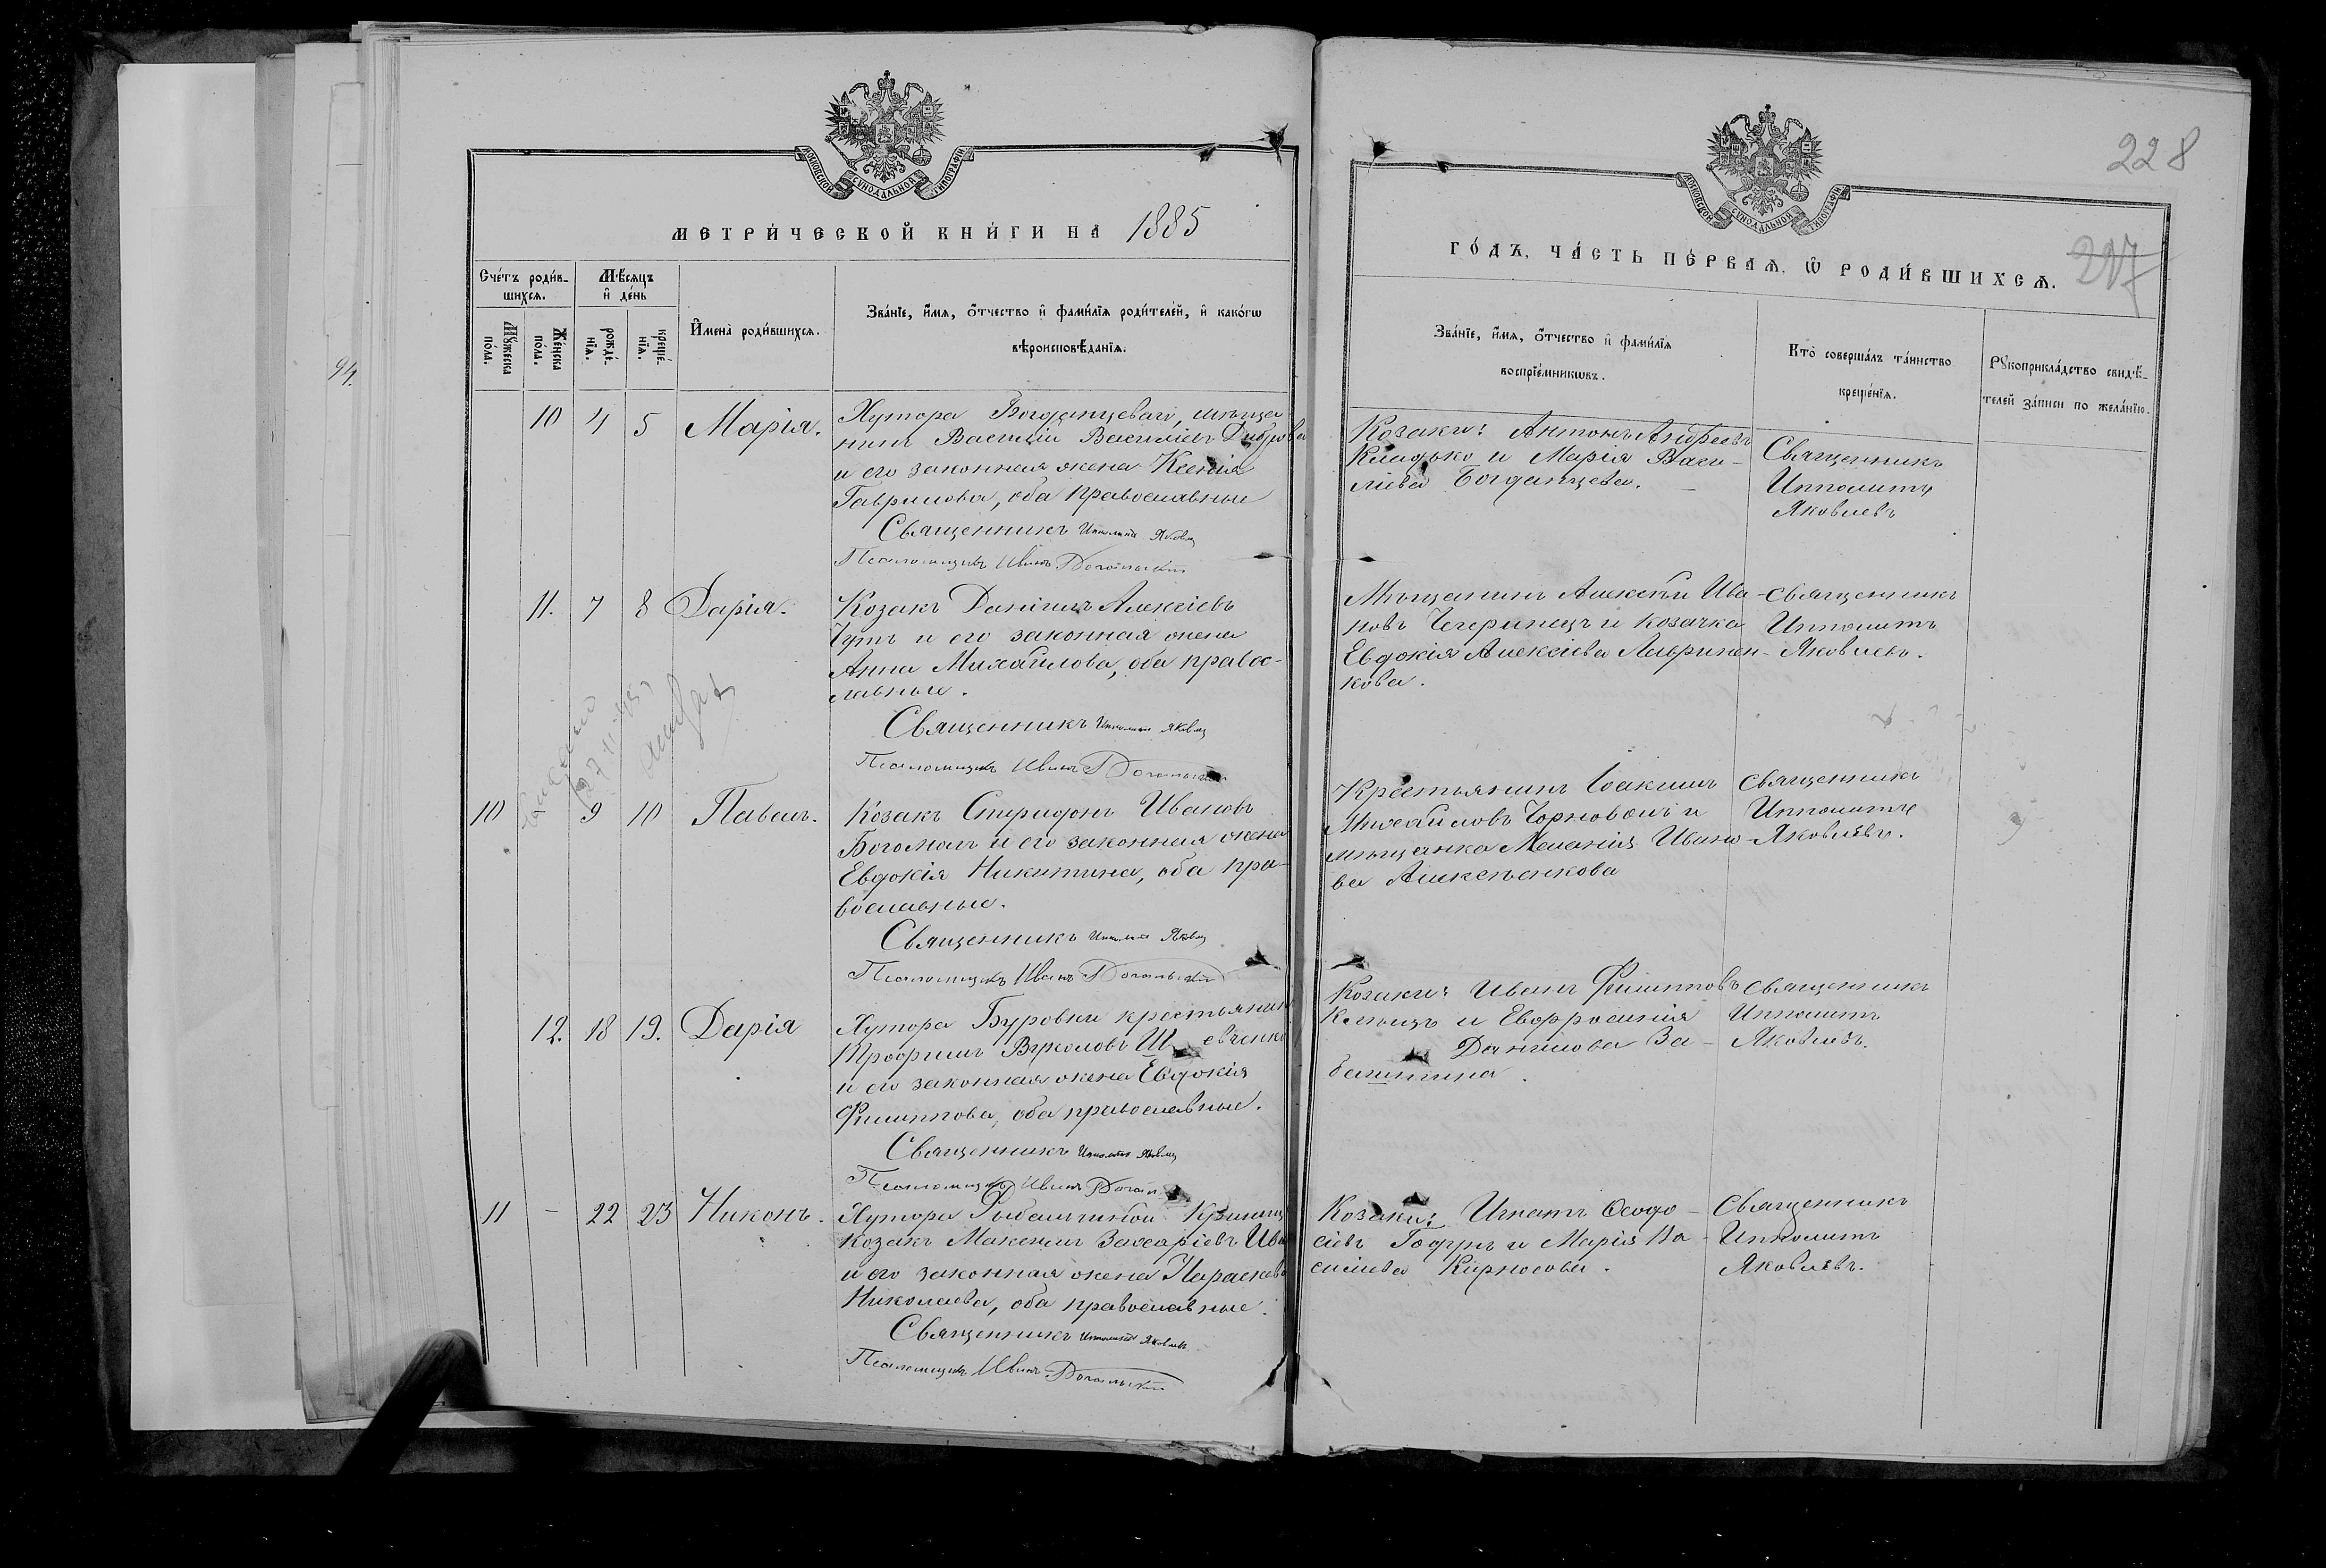 94.
МОСКОВСКОЙ СѴНОДАЛЬНОЙ ТИПОГРАФІИ
МЕТРИ́ЧЕСКОЙ КНИ́ГИ НА 1885
Сче́тъ роди́в-
шихся.
Мѣ́сяцъ
и҆ де́нь
И҆мена̀ роди́вшихся.
Зва́нїе, и҆́мя, ѻ҆́тчество и҆ фами́лїя роди́телей, и҆ како́гѡ
вѣроисповѣ́данїѧ.
Мꙋ́жеска
по́ла.
Же́нска
по́ла.
рожде́-
нїѧ.
креще́-
нїѧ.
10 4 5 Марія.
Хутора Богданцеваго, мѣща
нинъ Василій Василіевъ Диброва
и его законная жена Ксенія
Гаврилова, оба православные
Священникъ Ипполитъ Яковлев
Псаломщикъ Иванъ
11. 7 8 Дарія.
Козакъ Даніилъ Алексіевъ
Чутъ и его законная жена
Анна Михайлова, оба правос-
лавные.
Священникъ Ипполитъ Яковлев
Псаломщикъ Иванъ
10 9 10 Павелъ.
Козакъ Спиридонъ Ивановъ
Богомолъ и его законная жена
Евдокія Никитина, оба пра-
вославные.
Священникъ Ипполитъ Яковлев
Псаломщикъ Иванъ
12. 18 19. Дарія
Хутора Буровки крестьянинъ
Трофимъ Вуколовъ Шевченко
и его законная жена Евдокія
Филиппова, оба православные.
Священникъ Ипполитъ Яковлев
Псаломщикъ Иванъ
11 - 22 23 Никонъ.
Хутора Рыбалчиной Криницы
козакъ Максимъ Захаріевъ Ива
и его законная жена Параскева
Николаева, оба православные.
Священникъ Ипполитъ Яковлев
Псаломщикъ Иванъ
228
217
МОСКОВСКОЙ СѴНОДАЛЬНОЙ ТИПОГРАФІИ
ГО́ДЪ, ЧА́СТЬ ПЕ́РВАѦ, Ѡ҆ РОДИ́ВШИХСѦ.
Зва́нїе, и҆́мя, ѻ҆́тчество и҆ фами́лїя
воспрїе́мникѡвъ.
Кто̀ соверша́лъ та́инство
креще́нїѧ.
Рꙋкоприкла́дство свидѣ́-
телей за́писи по жела́нїю.
Козаки: Антонъ Андреевъ
Кладько и Марія Васи-
ліева Богданцева.
Священникъ
Ипполитъ
Яковлевъ
Мѣщанинъ Алексѣй Ива-
новъ Чегринецъ и козачка
Евдокія Алексіева Лавринен-
кова.
Священникъ
Ипполитъ
Яковлевъ.
Крестьянинъ Іоакимъ
Михайловъ Чорноволъ и
мѣщанка Меланія Ивано-
ва Алексѣенкова
Священникъ
Ипполитъ
Яковлевъ.
Козаки: Иванъ Филипповъ
и Евфросинія
Данилова За-
Священникъ
Ипполитъ
Яковлевъ.
Козаки: Игнатъ Феодо-
сіевъ и Марія Ва-
силіева Кирносова.
Священникъ
Ипполитъ
Яковлевъ.